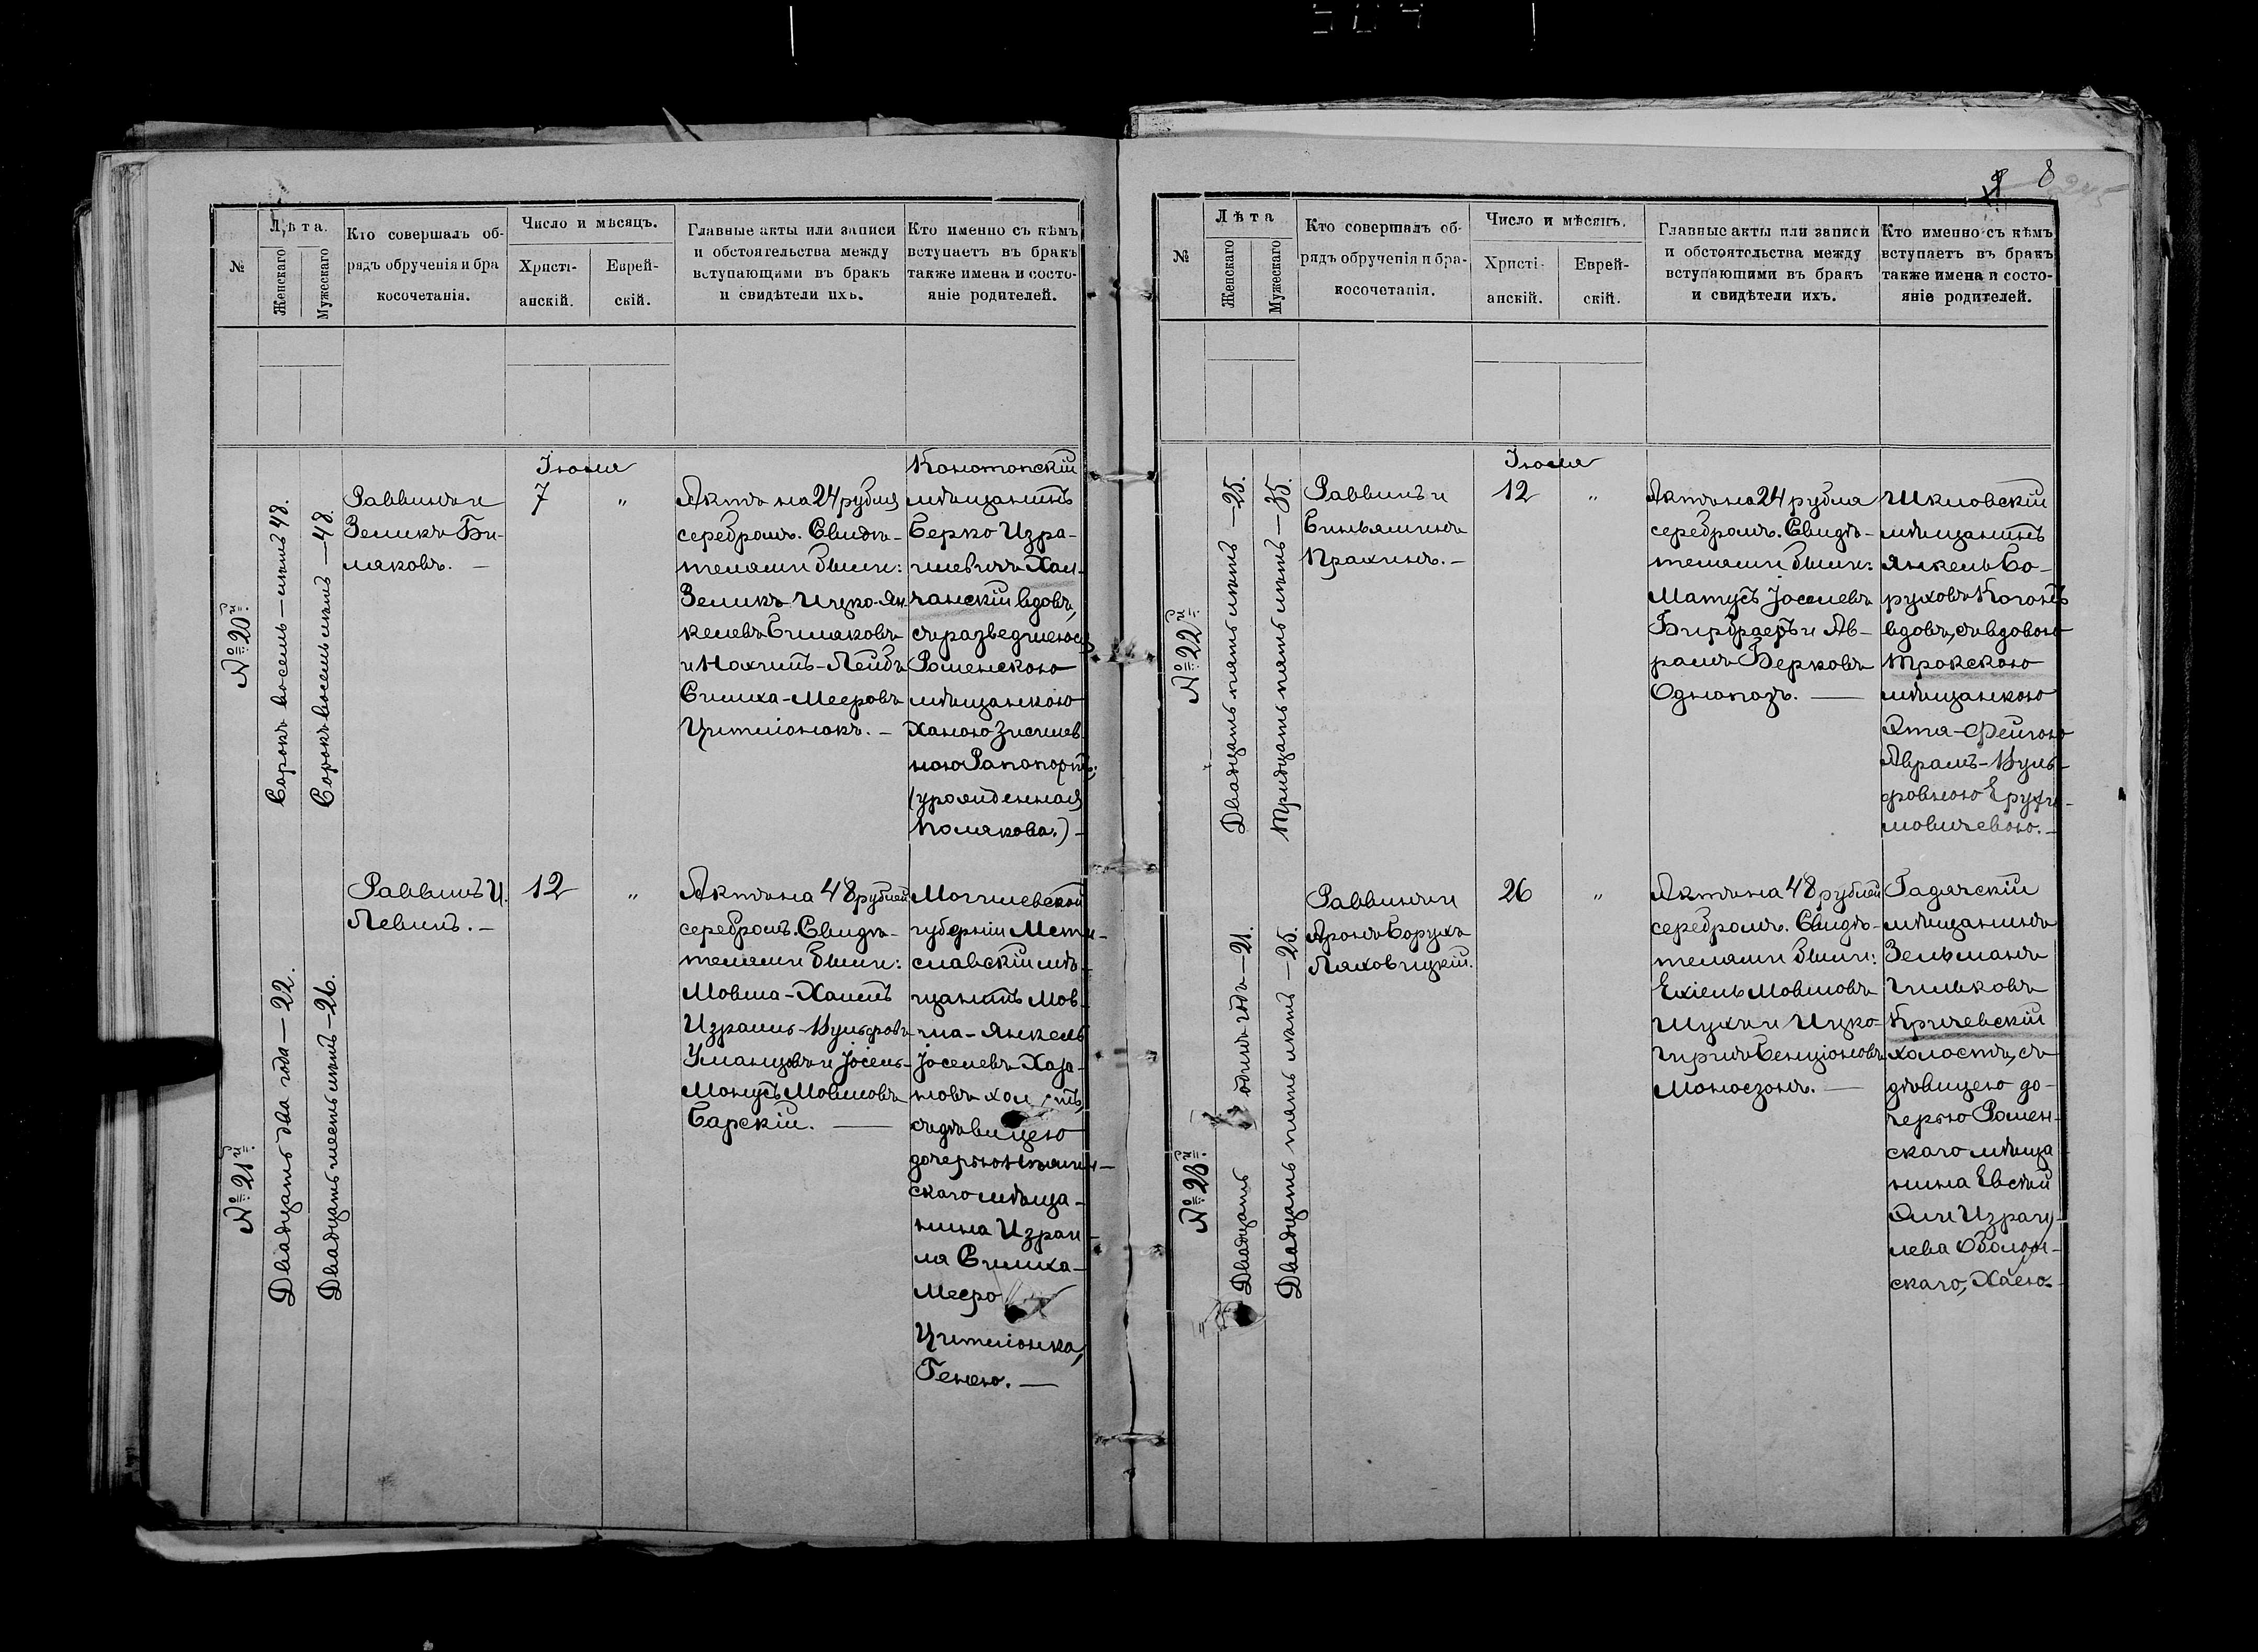 №
Лѣта.
Женскаго
Мужескаго
Кто совершалъ об-
рядъ обрученія и бра
косочетанія.
Число и мѣсяцъ.
Христі-
анскій.
Еврей-
скій.
Главные акты или записи
и обстоятельства между
вступающими въ бракъ
и свидѣтели ихъ.
Кто именно съ кѣмъ
вступаетъ въ бракъ
также имена и состо-
яніе родителей.
№ 20й
Сорокъ восемь лѣтъ 48.
Сорокъ восемь лѣтъ — 48.
Раввинъ и
Зеликъ Би-
ляковъ. —
Іюля
7
"
Актъ на 24 рубля
серебромъ. Свидѣ-
телями были:
Зеликъ Ицко-Ян-
келевъ Биляковъ
и Нохимъ-Лейбъ
Симха-Мееровъ
Цитліонокъ. —
Конотопскій
мѣщанинъ
Берко Изра-
илевичъ Хал-
чанскій вдовъ,
съ разведшеюся
Роменскою
мѣщанкою
Ханою Зиселев
ною Рапопортъ,
(урожденная
Полякова.) —
№ 21й
Двадцать два года — 22.
Двадцать шесть лѣтъ — 26.
Раввинъ И.
Левинъ. —
12
"
Актъ на 48 рублей
серебромъ. Свидѣ-
телями были:
Мовша-Хаимъ
Израиль-Вульфовъ
Уманцовъ и Іосель-
Монусъ Мовшовъ
Барскій. —
Могилевской
губерніи Мсти-
славскій мѣ-
щанинъ Мов-
ша-Янкель
Іоселевъ Хаза-
новъ хол
съ дѣвицею
дочерью
скаго мѣща-
нина Израи-
ля Симха-
Меєро
Цитліонка,
Генею. —
8
№
Лѣта
Женскаго
Мужескаго
Кто совершалъ об-
рядъ обрученія и бра-
косочетанія.
Число и мѣсяцъ.
Христі-
анскій.
Еврей-
скій.
Главные акты или записи
и обстоятельства между
вступающими въ бракъ
и свидѣтели ихъ.
Кто именно съ кѣмъ
вступаетъ въ бракъ
также имена и состо-
яніе родителей.
№ 22й
Двадцать пять лѣтъ — 25.
Тридцать пять лѣтъ — 35.
Раввинъ и
Биньяминъ
Прахинъ. —
Іюля
12
"
Актъ на 24 рубля
серебромъ. Свидѣ-
телями были:
Матусъ Іоселевъ
Бирбраеръ и Ав-
рамъ Берковъ
Однопозъ. —
Шкловскій
мѣщанинъ
Янкель Бо-
руховъ Когонъ
вдовъ, съ вдовою
Трокскою
мѣщанкою
Ята-Фейгою
Аврамъ-Вуль-
фовною Ерухи-
мовичевою. —
№ 23й
Двадцать одинъ годъ — 21.
Двадцать пять лѣтъ — 25.
Раввинъ и
Аронъ Борухъ
Ляховицкій.
26
"
Актъ на 48 рублей
серебромъ. Свидѣ-
телями были:
Ехіель Мовшовъ
Шухъ и Ицко-
Гиршъ Бенціоновъ
Моносзонъ. —
Гадячскій
мѣщанинъ
Зельманъ
Гильковъ
Кричевскій
холостъ, съ
дѣвицею до-
черью Ромен-
скаго мѣща
нина Евсѣй
Эли Израи-
лева Оболон-
скаго, Хаею.